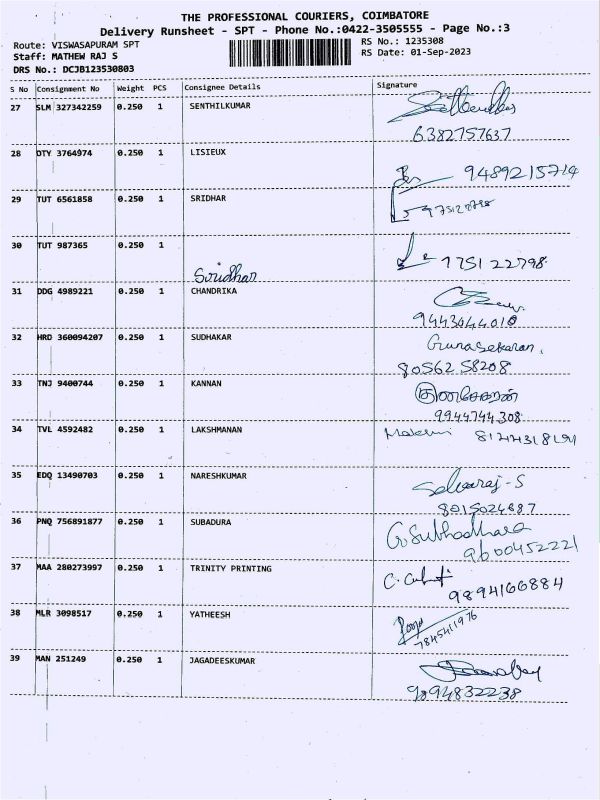 THE PROFESSIONAL COURIERS, COIMBATORE
Delivery Runsheet - SPT - Phone No.:0422-3505555 - Page No.:3
Route: VISWASAPURAM SPT
RS No.: 1235308
Staff: MATHEW RAJ S
RS Date: 01-Sep-2023
DRS No.: DCJB123530803
S No Consignment No Weight PCS Consignee Details Signature
27 SLM 327342259 0.250 1 SENTHILKUMAR
6382757637
28 DTY 3764974 0.250 1 LISIEUX
9489215714
29 TUT 6561858 0.250 1 SRIDHAR
975122798
30 TUT 987365 0.250 1
Sridhar
9751 22798
31 DDG 4989221 0.250 1 CHANDRIKA
9443044010
32 HRD 360094207 0.250 1 SUDHAKAR Gunasekaran.
80562 58208
33 TNJ 9400744 0.250 1 KANNAN குணசேகரன்
9944744308
34 TVL 4592482 0.250 1 LAKSHMANAN
35 EDQ 13490703 0.250 1 NARESHKUMAR Selvaraj-S
8015024887
36 PNQ 756891877 0.250 1 SUBADURA G. Subhadhara
9600452221
37 MAA 280273997 0.250 1 TRINITY PRINTING
9894166884
38 MLR 3098517 0.250 1 YATHEESH Pooja
7845411976
39 MAN 251249 0.250 1 JAGADEESKUMAR
9894832238